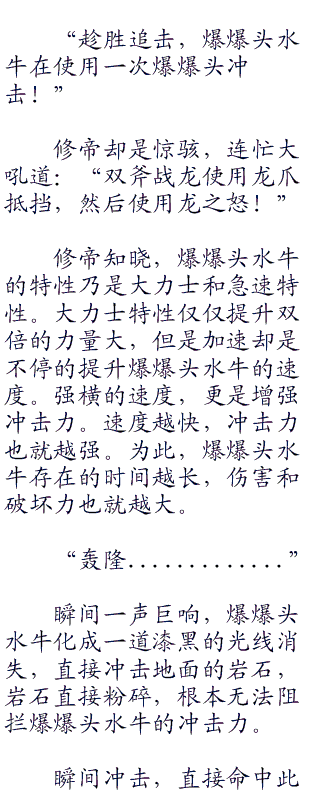 “趁胜追击，爆爆头水
牛在使用一次爆爆头冲
击！”
修帝却是惊骇，连忙大
吼道：“双斧战龙使用龙爪
抵挡，然后使用龙之怒！”
修帝知晓，爆爆头水牛
的特性乃是大力士和急速特
性。大力士特性仅仅提升双
倍的力量大，但是加速却是
不停的提升爆爆头水牛的速
度。强横的速度，更是增强
冲击力。速度越快，冲击力
也就越强。为此，爆爆头水
牛存在的时间越长，伤害和
破坏力也就越大。
“轰隆.............”
瞬间一声巨响，爆爆头
水牛化成一道漆黑的光线消
失，直接冲击地面的岩石，
岩石直接粉碎，根本无法阻
拦爆爆头水牛的冲击力。
瞬间冲击，直接命中此